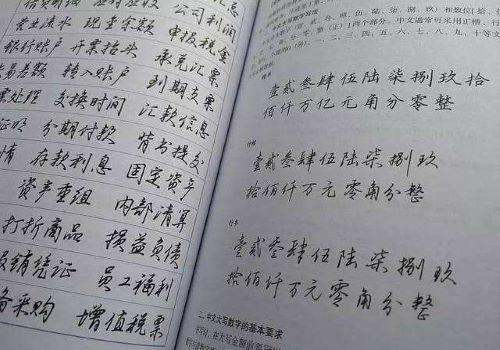 应付应收 公司利润
营业流水 现金余额 申报税金
银行账户 开票抬头 承兑汇票
易差额 转入账户 到期支票
票处理 交换时间 汇款信息
证明 分期付款 背书提交
情 存款利息 固定资产
资产重组 内部清算
打折商品 损益负债
销凭证 员工福利
备采购 增值税票
二、三、四、五、六、七、八、九、十等文
壹贰叁肆伍陆柒捌玖拾
佰仟万亿元角分零整
行楷
壹贰叁肆伍陆柒捌玖
拾佰仟万元零角分整
行书
壹贰叁肆伍陆柒捌玖
拾佰仟万元零角分整
二、中文大写数字的基本要求